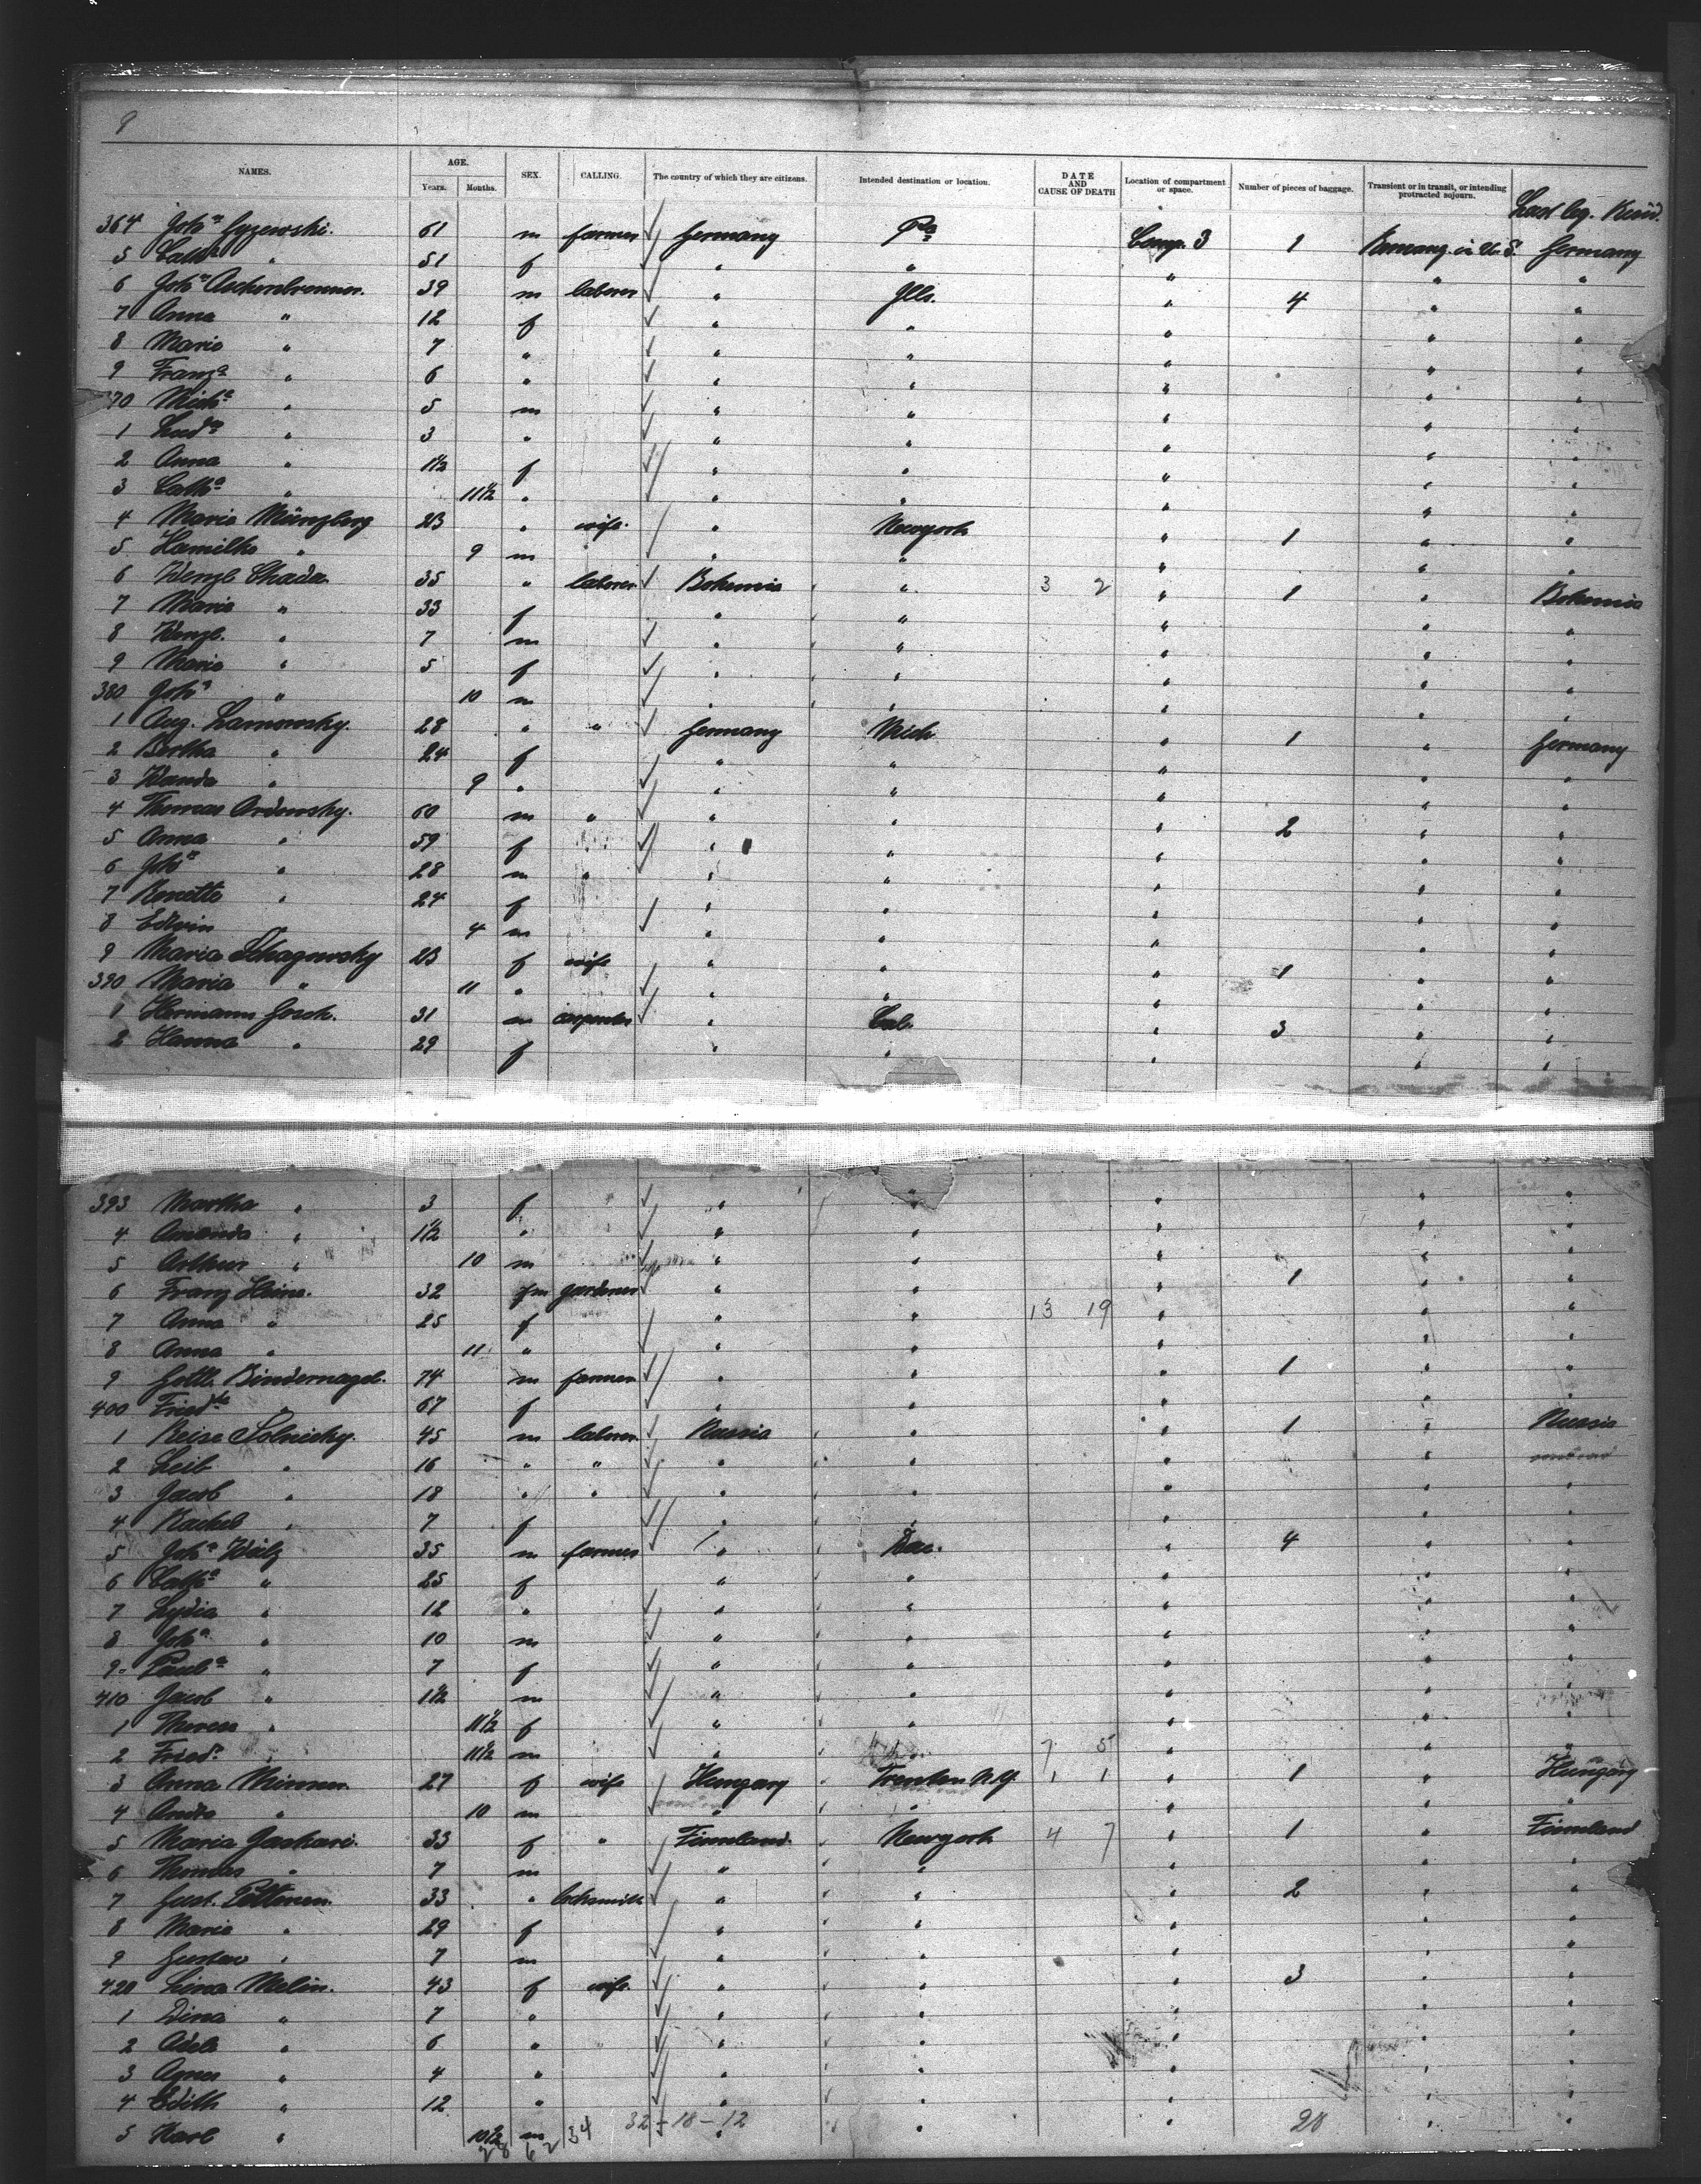 9
NAMES. AGE. Years. Months. SEX. CALLING. The country of which they are citizens. Intended destination or location. DATE AND CAUSE OF DEATH Location of compartment or space. Number of pieces of baggage. Transient or in transit, or intending protracted sojourn.
Last leg. Resid.
364 Johⁿ Gyzewski. 61 m farmer Germany Pa Comp. 3 1 Remang. in U. S. Germany
5 Cathᵃ " 51 f " " " " "
6 Johⁿ Aschenbrenner. 39 m laborer " Ills. " 4 " "
7 Anna " 12 f " " " " "
8 Marie " 7 " " " " " "
9 Franzᵃ " 6 " " " " " "
70 Michˡ " 5 m " " " " "
1 Ludʷ " 3 " " " " " "
2 Anna " 1 1/2 f " " " " "
3 Cathᵃ " 11 1/2 " " " " " "
4 Marie Münzberg 23 " wife. " Newyork " 1 " "
5 " 9 m " " " " "
6 Wenzl Chada. 35 " laborer Bohemia " 3 2 " 1 " Bohemia
7 Marie " 33 f " " " " "
8 Wenzl. " 7 m " " " " "
9 Marie " 5 f " " " " "
380 Johⁿ " 10 m " " " " "
1 Aug. Lamowsky. 28 " " Germany Mich " 1 " Germany
2 Bertha " 24 f " " " " "
3 Wanda " 9 " " " " " "
4 Thomas Ordowsky. 60 m " " " " 2 " "
5 Anna " 59 f " " " " "
6 Johⁿ " 28 m " " " " " "
7 Renette " 24 f " " " " "
8 Edwin " 4 m " " " " "
9 Maria Schagowsky 23 f wife " " " 1 " "
390 Maria " 11 " " " " " "
1 Hermann Gosch. 31 m carpenter " Cal. " 3 " "
2 Hanna " 29 f " " " " "
393 Martha " 3 f " " " " "
4 Amanda " 1 1/2 " " " " " "
5 Arthur " 10 m " " " " "
6 Franz Heine. 32 m gardener " " " 1 " "
7 Anna " 25 f " " 13 19 " " "
8 Anna " 11 " " " " " "
9 Gottl. Bindernagel. 74 m farmer " " " 1 " "
400 Friedᵏᵉ " 67 f " " " " "
1 Reise Solnicky. 45 m laborer Russia " " 1 " Russia
2 Leib " 16 " " " " " "
3 Jacob " 18 " " " " " " "
4 Rachel " 7 f " " " " "
5 Johⁿ Weilz 35 m farmer " Dac. " 4 " "
6 Cathᵃ " 25 f " " " " "
7 Lydia " 12 " " " " " "
8 Johⁿ " 10 m " " " " "
9 Paulᵃ " 7 f " " " " "
410 Jacob " 1 1/2 m " " " " "
1 Theresa " 11 1/2 f " " " " "
2 Friedʳ " 11 1/2 m " " 7 5 " " "
3 Anna 27 f wife Hungary Trenton N.Y. 1 1 " 1 " Hungary
4 " 10 m " " " " "
5 Maria Zachari. 33 f " Finnland. Newyork 4 7 " 1 " Finnland
6 Thomas " 7 m " " " " "
7 Gust. Peltonen. 33 " locksmith " " " 2 " "
8 Marie " 29 f " " " " "
9 Gustav " 7 m " " " " "
420 Lina Melin. 43 f wife. " " " 3 " "
1 Dina " 7 " " " " " "
2 Adele " 6 " " " " " "
3 Agnes " 4 " " " " " "
4 Edith " 12 " " " " " "
5 Karl " 10 1/2 m " " " " "
28 62 34 32-18-12 28